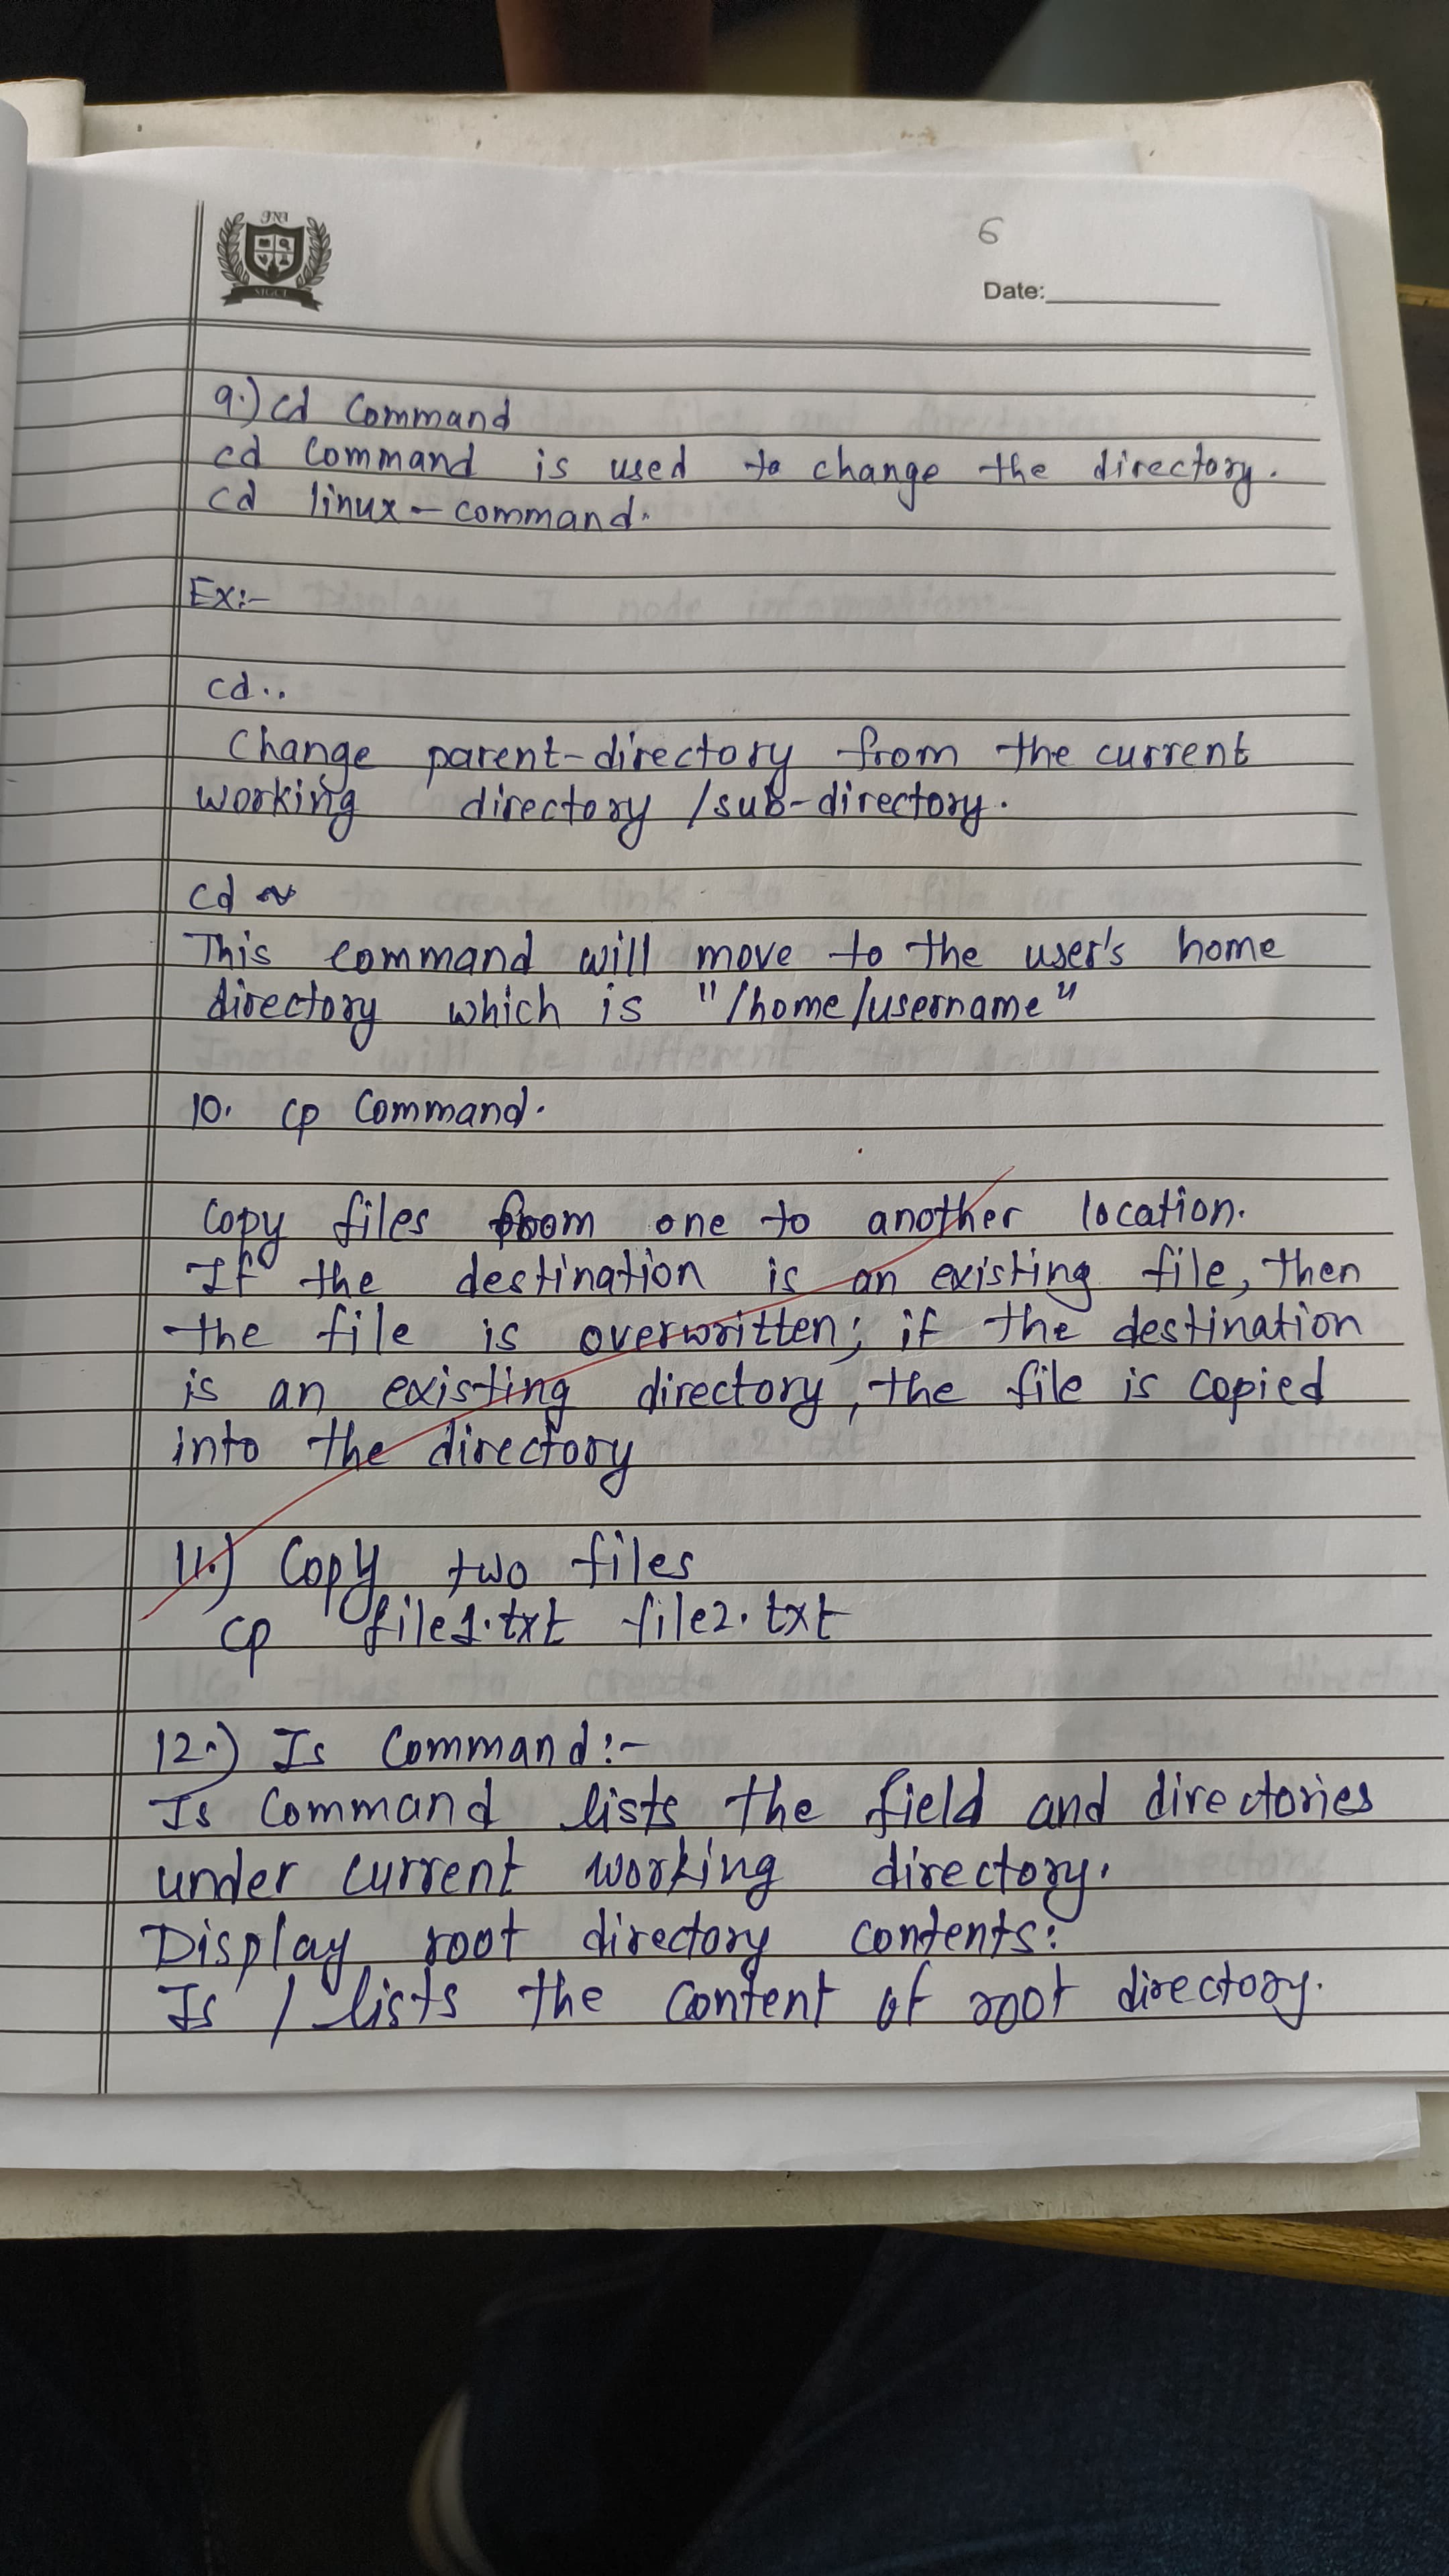 6
Date:
9.) cd Command
cd Command is used to change the directory.
cd linux-command.
Ex:-
cd..
Change parent-directory from the current
working directory /sub-directory.
cd ~
This command will move to the user's home
directory which is "/home/username"
10. cp Command.
Copy files from one to another location.
If the destination is an existing file, then
the file is overwritten; if the destination
is an existing directory, the file is copied
into the directory
11.) Copy two files
cp file1.txt file2.txt
12.) Is Command:-
Is Command lists the field and directories
under current working directory.
Display root directory contents:
Is / lists the content of root directory.